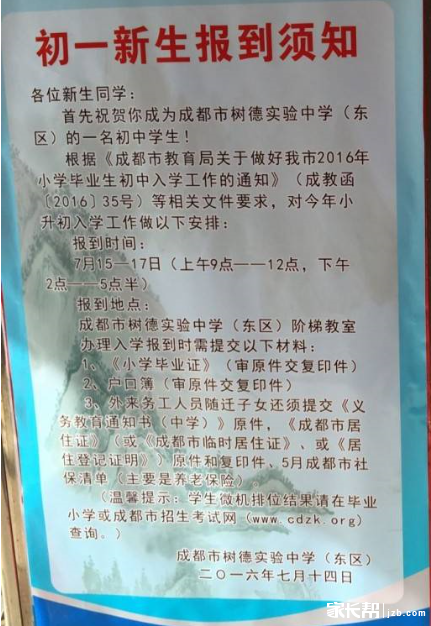 初一新生报到须知
各位新生同学：
首先祝贺你成为成都市树德实验中学（东
区）的一名初中学生！
根据《成都市教育局关于做好我市2016年
小学毕业生初中入学工作的通知》（成教函
〔2016〕35号）等相关文件要求，对今年小
升初入学工作做以下安排：
报到时间：
7月15—17日（上午9点——12点，下午
2点——5点半）
报到地点：
成都市树德实验中学（东区）阶梯教室
办理入学报到时需提交以下材料：
1、《小学毕业证》（审原件交复印件）
2、户口簿（审原件交复印件）
3、外来务工人员随迁子女还须提交《义
务教育通知书（中学）》原件，《成都市居
住证》（或《成都市临时居住证》、或《居
住登记证明》）原件和复印件、5月成都市社
保清单（主要是养老保险）
（温馨提示：学生微机排位结果请在毕业
小学或成都市招生考试网（www.cdzk.org）
查询。）
成都市树德实验中学（东区）
二〇一六年七月十四日
家长帮 jzb.com